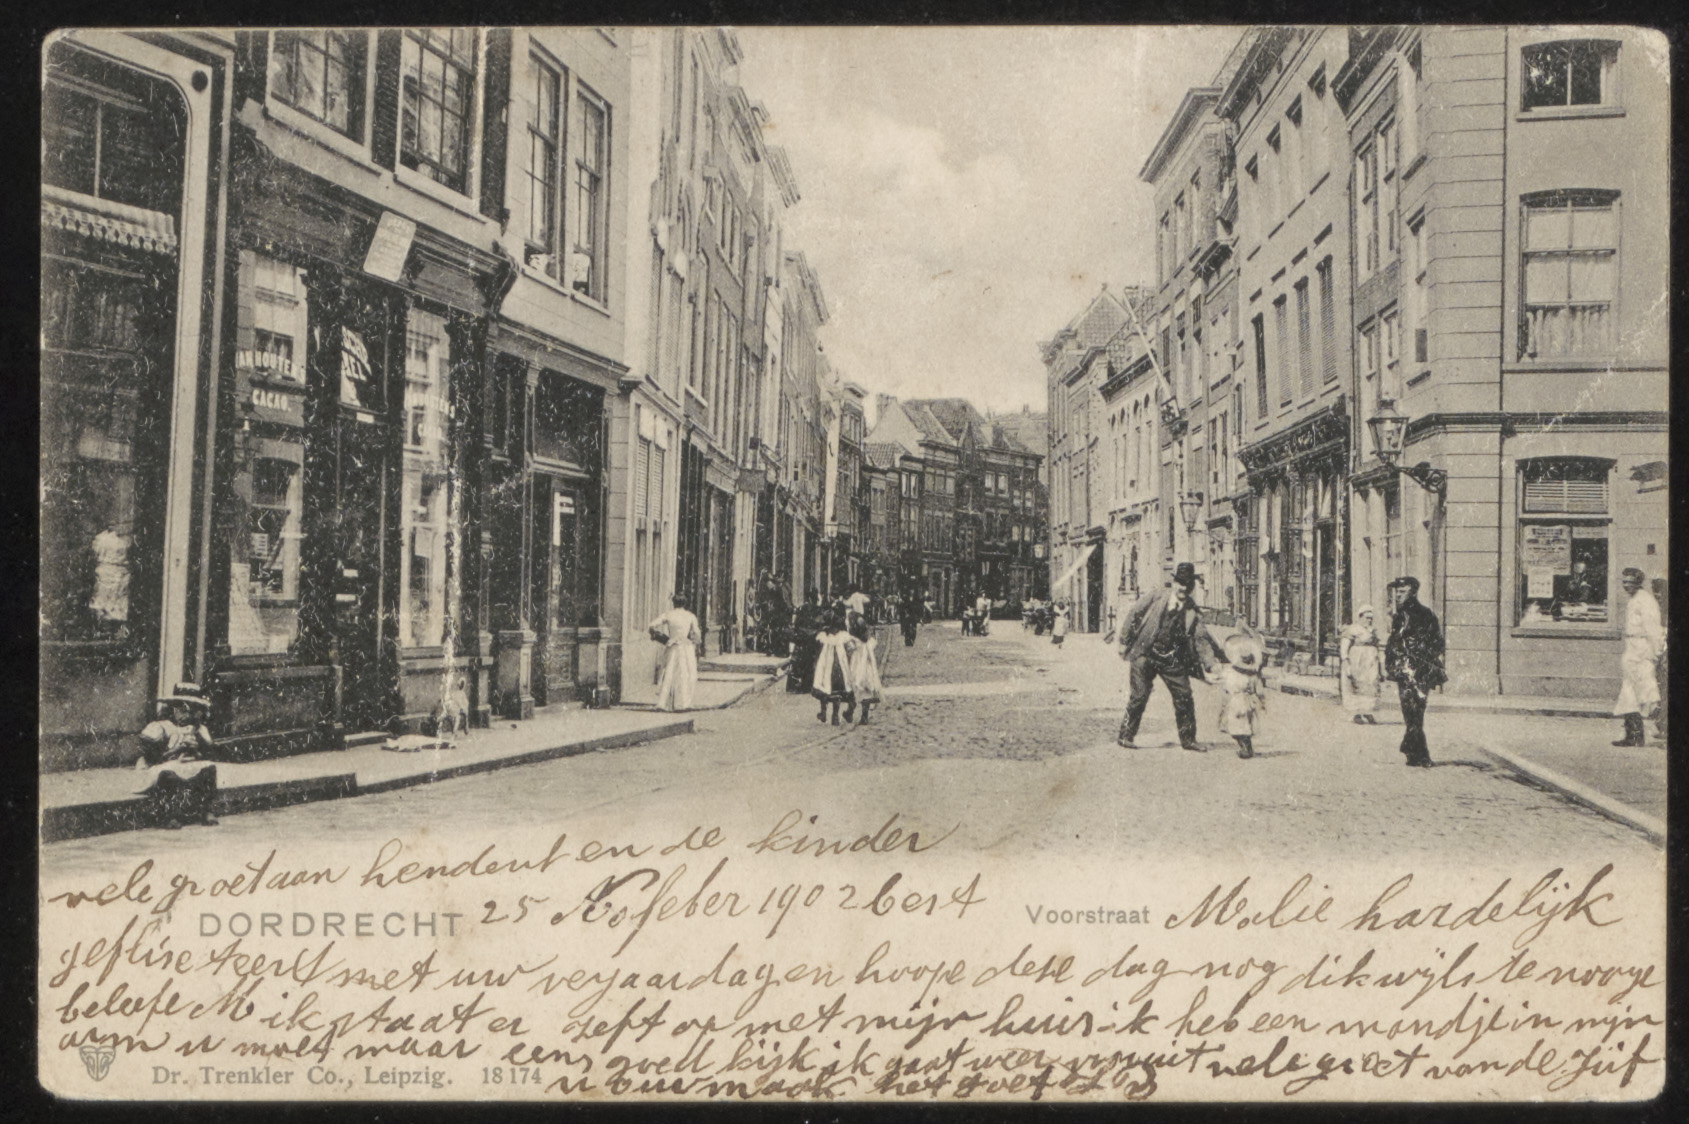 VAN HOUTEN'S
CACAO.
vele groetaan hendent en de kinder
DORDRECHT 25 Nofeber 1902 best Voorstraat M. lie hardelijk
geflise teerd met uw verjaardag en hoope dese dag nog dikwijls te
belefe M ik staat er zeft op met mijn huis ik heb een mandje in mijn
arm u moet maar eens goed kijk ik gaat weer vele groet van de Jüf
Dr. Trenkler Co., Leipzig. 18174
maak het goet